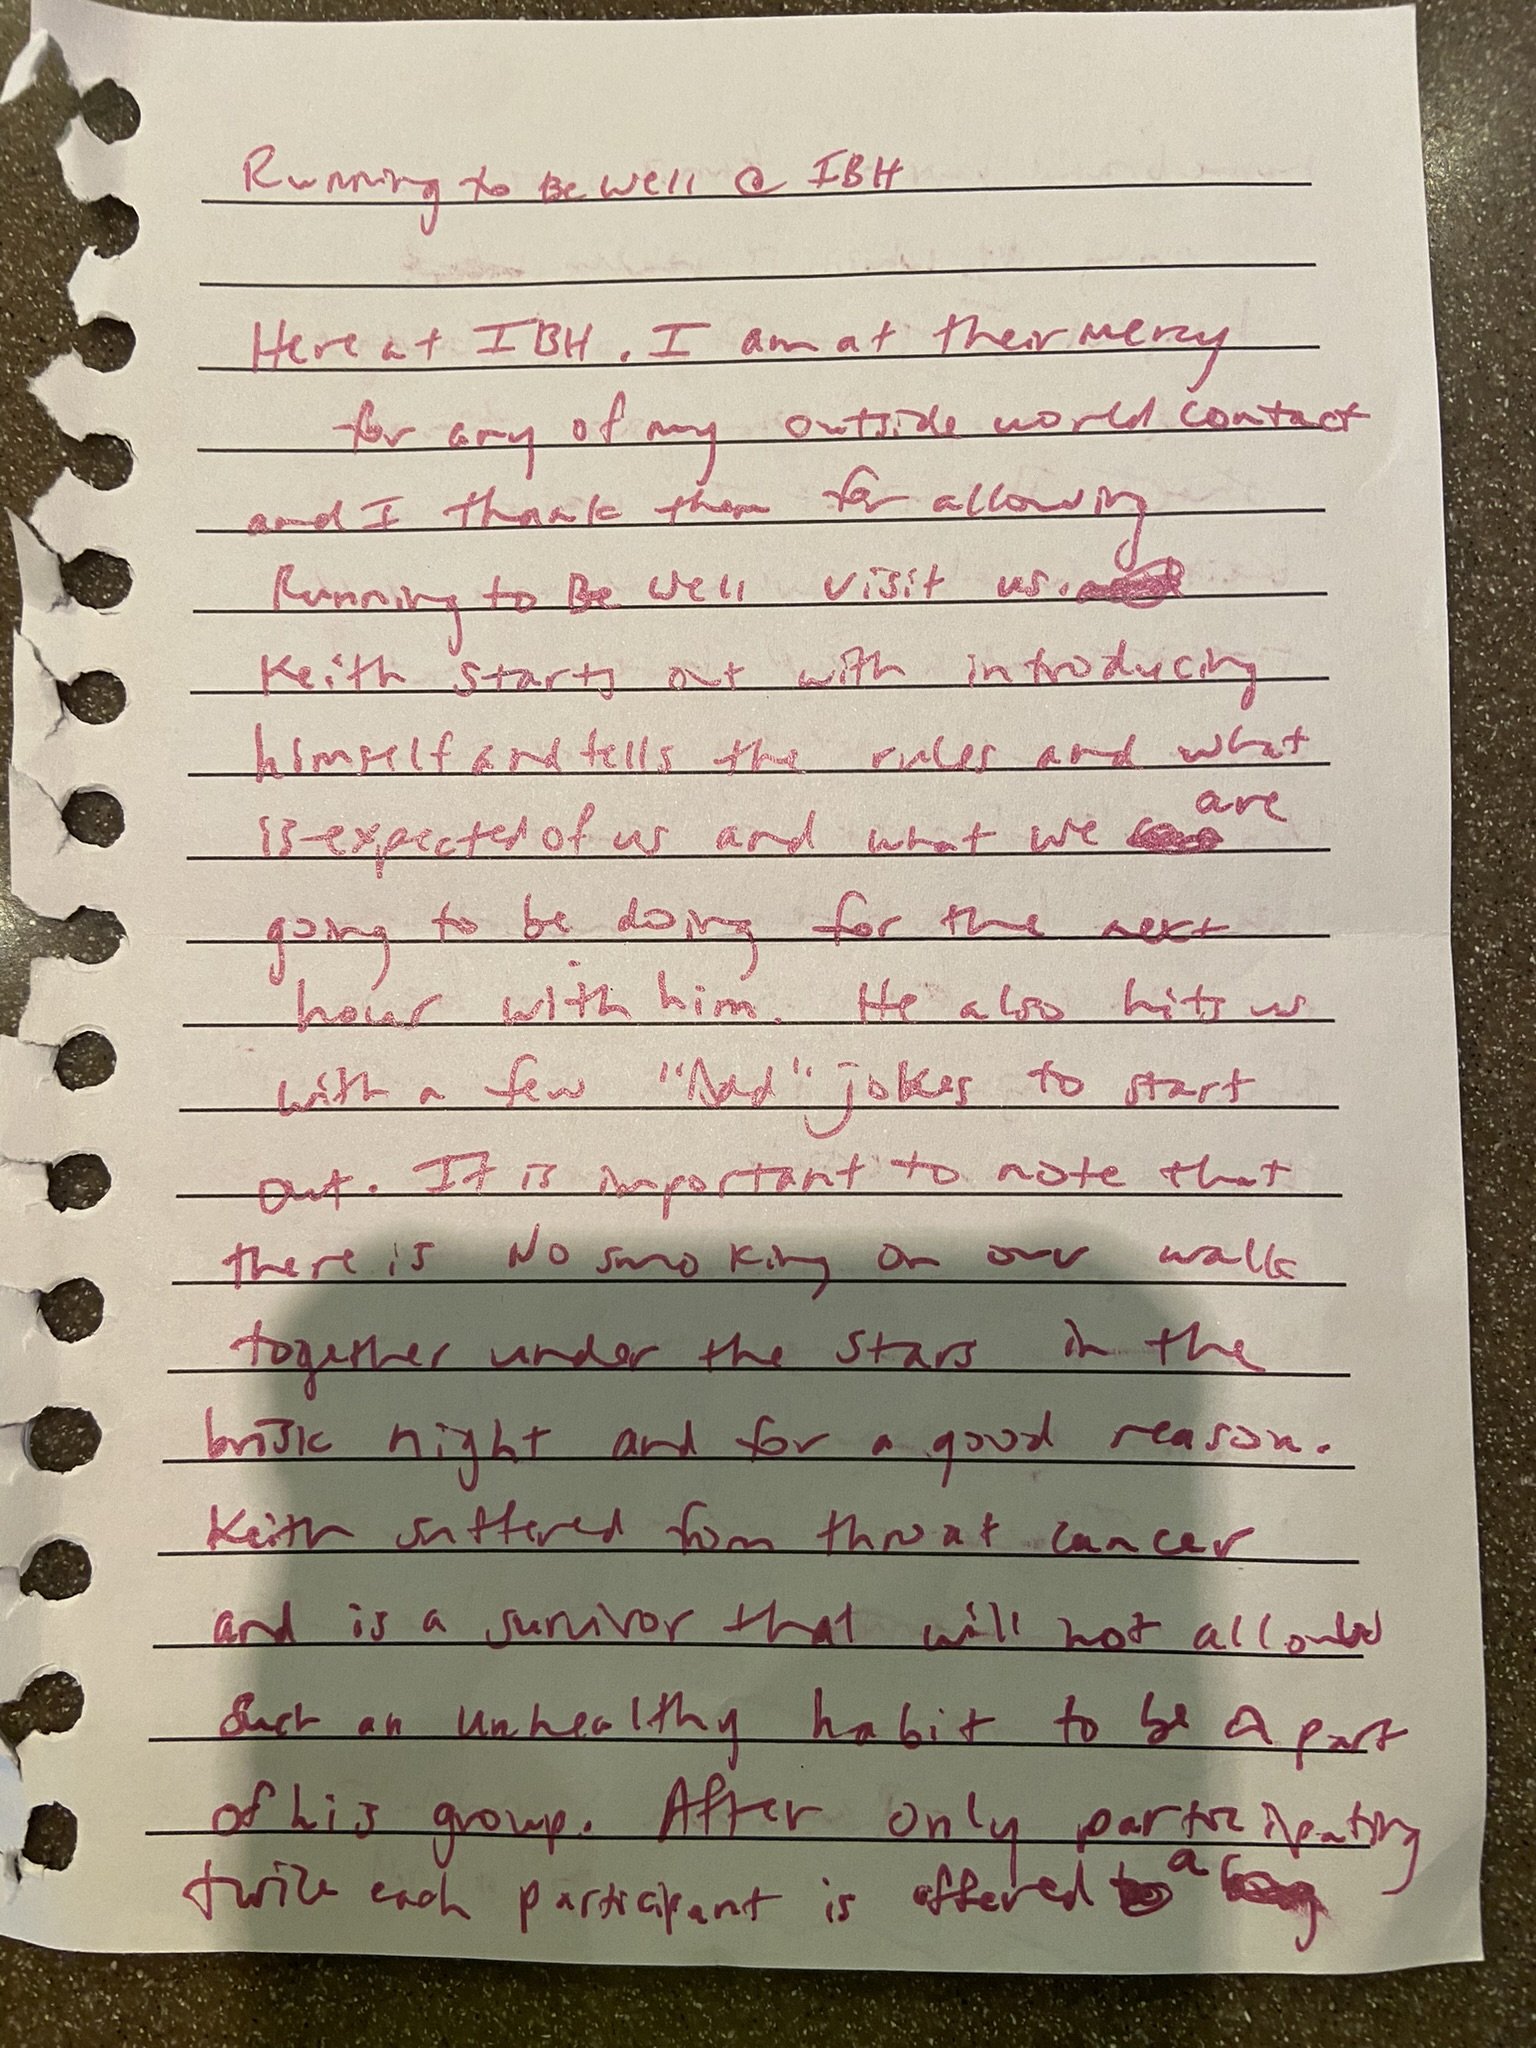 Running to Be Well @ IBH
Here at IBH. I am at their mercy
for any of my outside world contact
and I thank them for allowing
Running to Be Well visit us.
Keith starts out with introducing
himself and tells the rules and what
is expected of us and what we are
going to be doing for the next
hour with him. He also hits us
with a few "Dad" jokes to start
out. It is important to note that
there is No smoking on our walk
together under the stars in the
brisk night and for a good reason.
Keith suffered from throat cancer
and is a survivor that will not allowed
such an unhealthy habit to be a part
of his group. After only participating
twice each participant is offered a